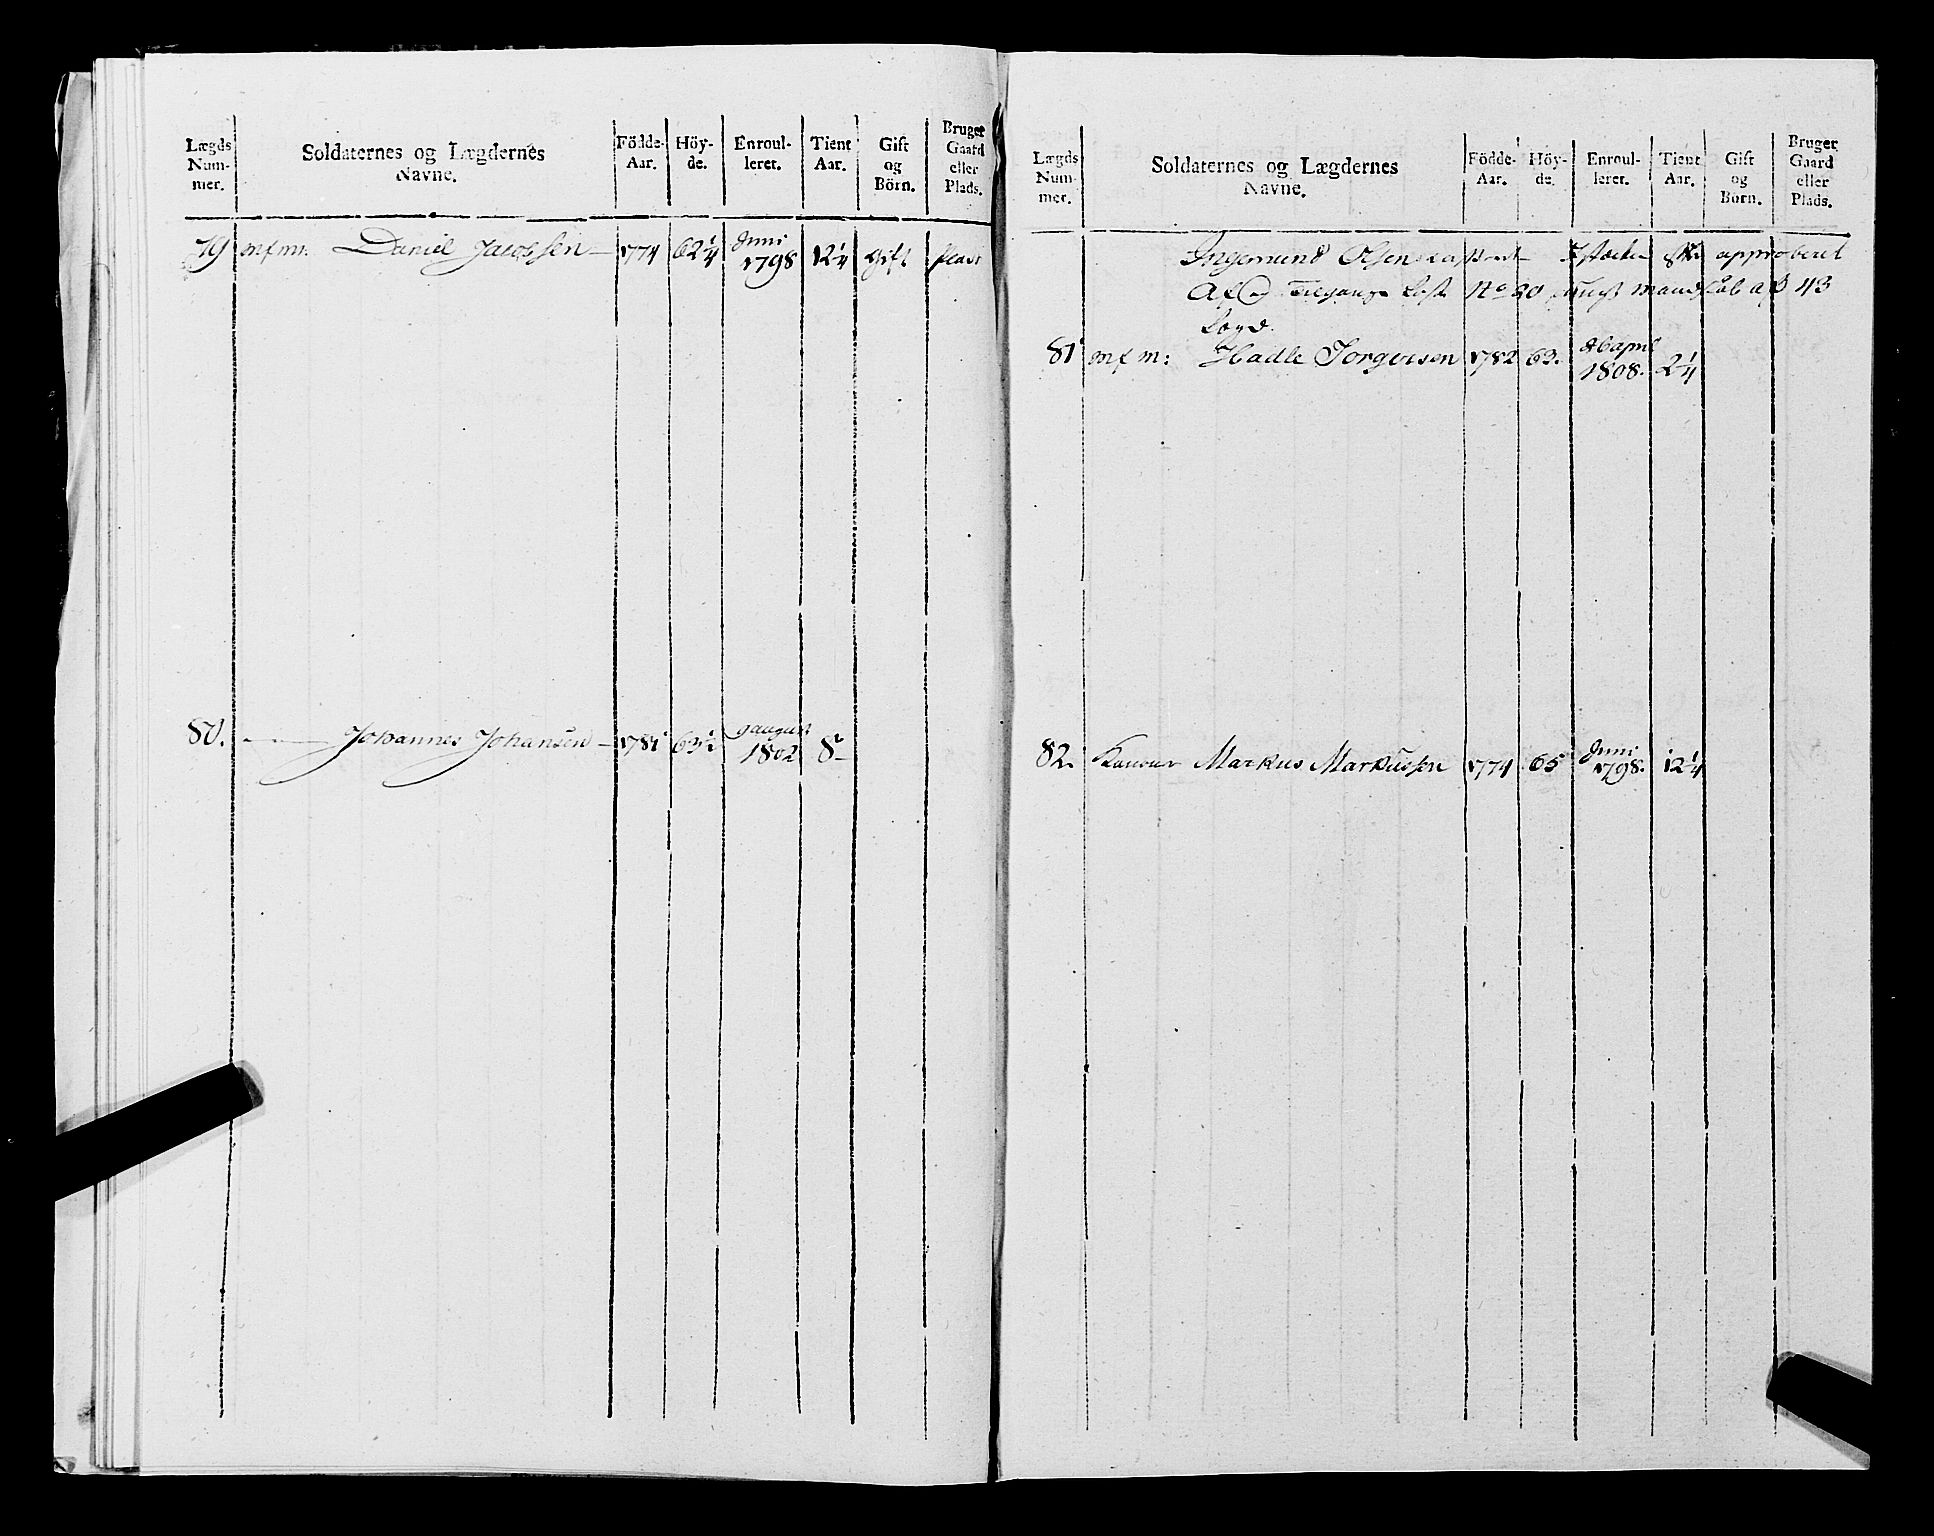 Lægds Num- mer.
Soldaternes og Lægdernes Navne.
Födde- Aar.
Höy- de.
Enroul- leret.
Tient Aar.
Gift og Börn.
Bruger Gaard eller Plads.
79 mfm: Daniel Jacobsen 1774 62 1/4 Juni 1798 12 1/4 Gift Plads
80. Johannes Johansen 1781 63 1/2 9 august 1802 8
Lægds Num- mer.
Soldaternes og Lægdernes Navne.
Födde- Aar.
Höy- de.
Enroul- leret.
Tient Aar.
Gift og Börn.
Bruger Gaard eller Plads.
Ingemund Olsen approberet
Af og Tilgangs List No 20 43
81 mfm: Hadle Torgersen 1782 63. 26 april 1808. 2 1/4
82. Markus Markussen 1774 65 Juni 1798. 12 1/4